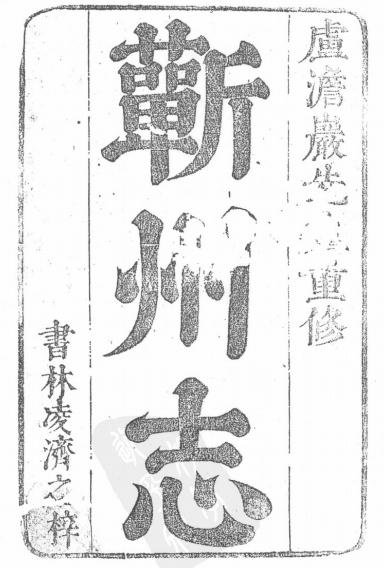 盧澹巖先生重修
蘄州志
書林凌濟之梓